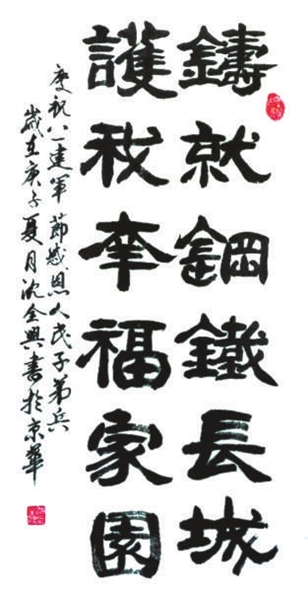 鑄就鋼鐵長城
護我幸福家園
慶祝八一建軍節感恩人民子弟兵
歲在庚子夏月沈全興書於京華